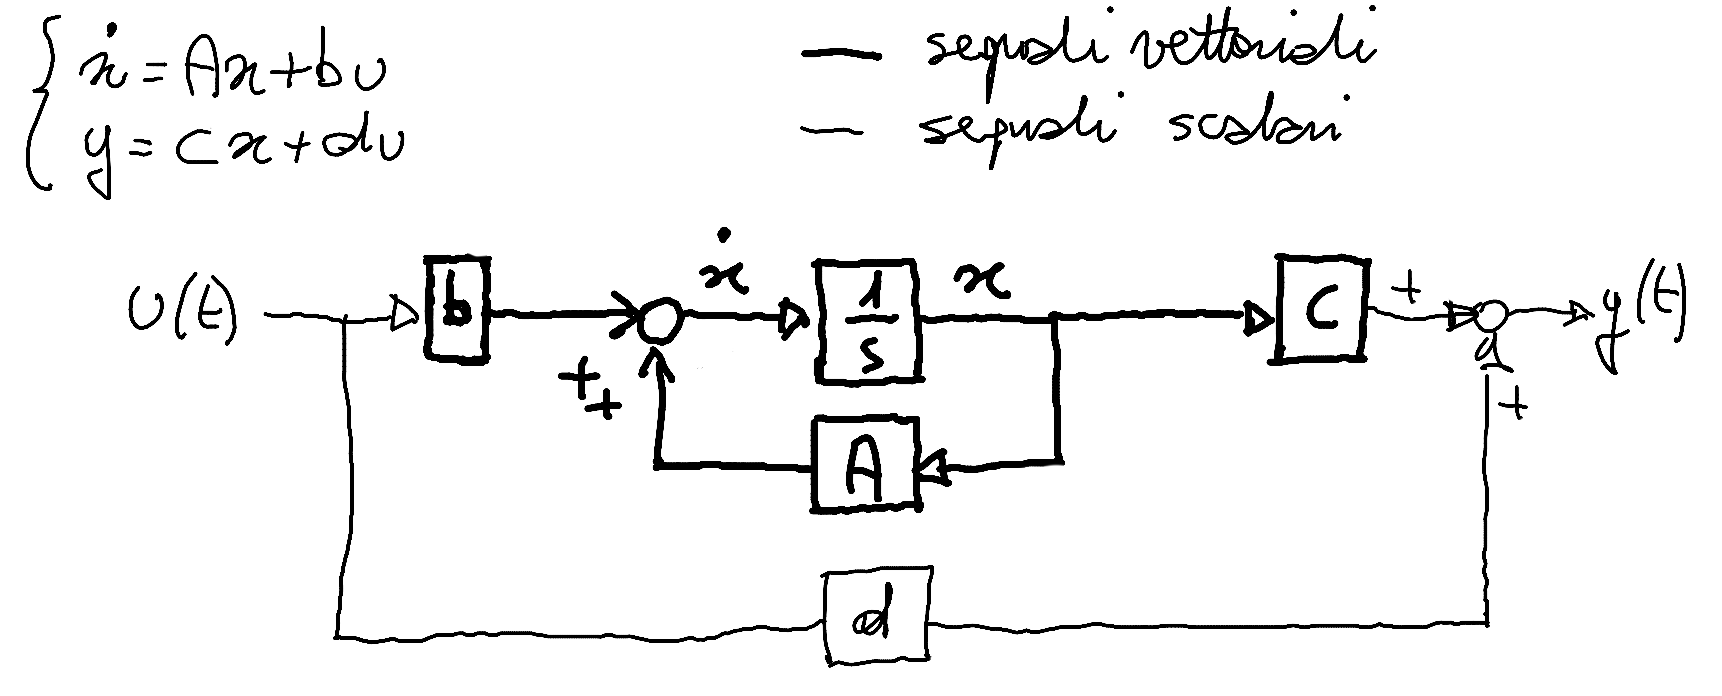 ẋ = Ax + bu
y = cx + du
segnali vettoriali
segnali scalari
u(t)
b
ẋ
1/s
x
c
+
y(t)
+
+
+
A
d